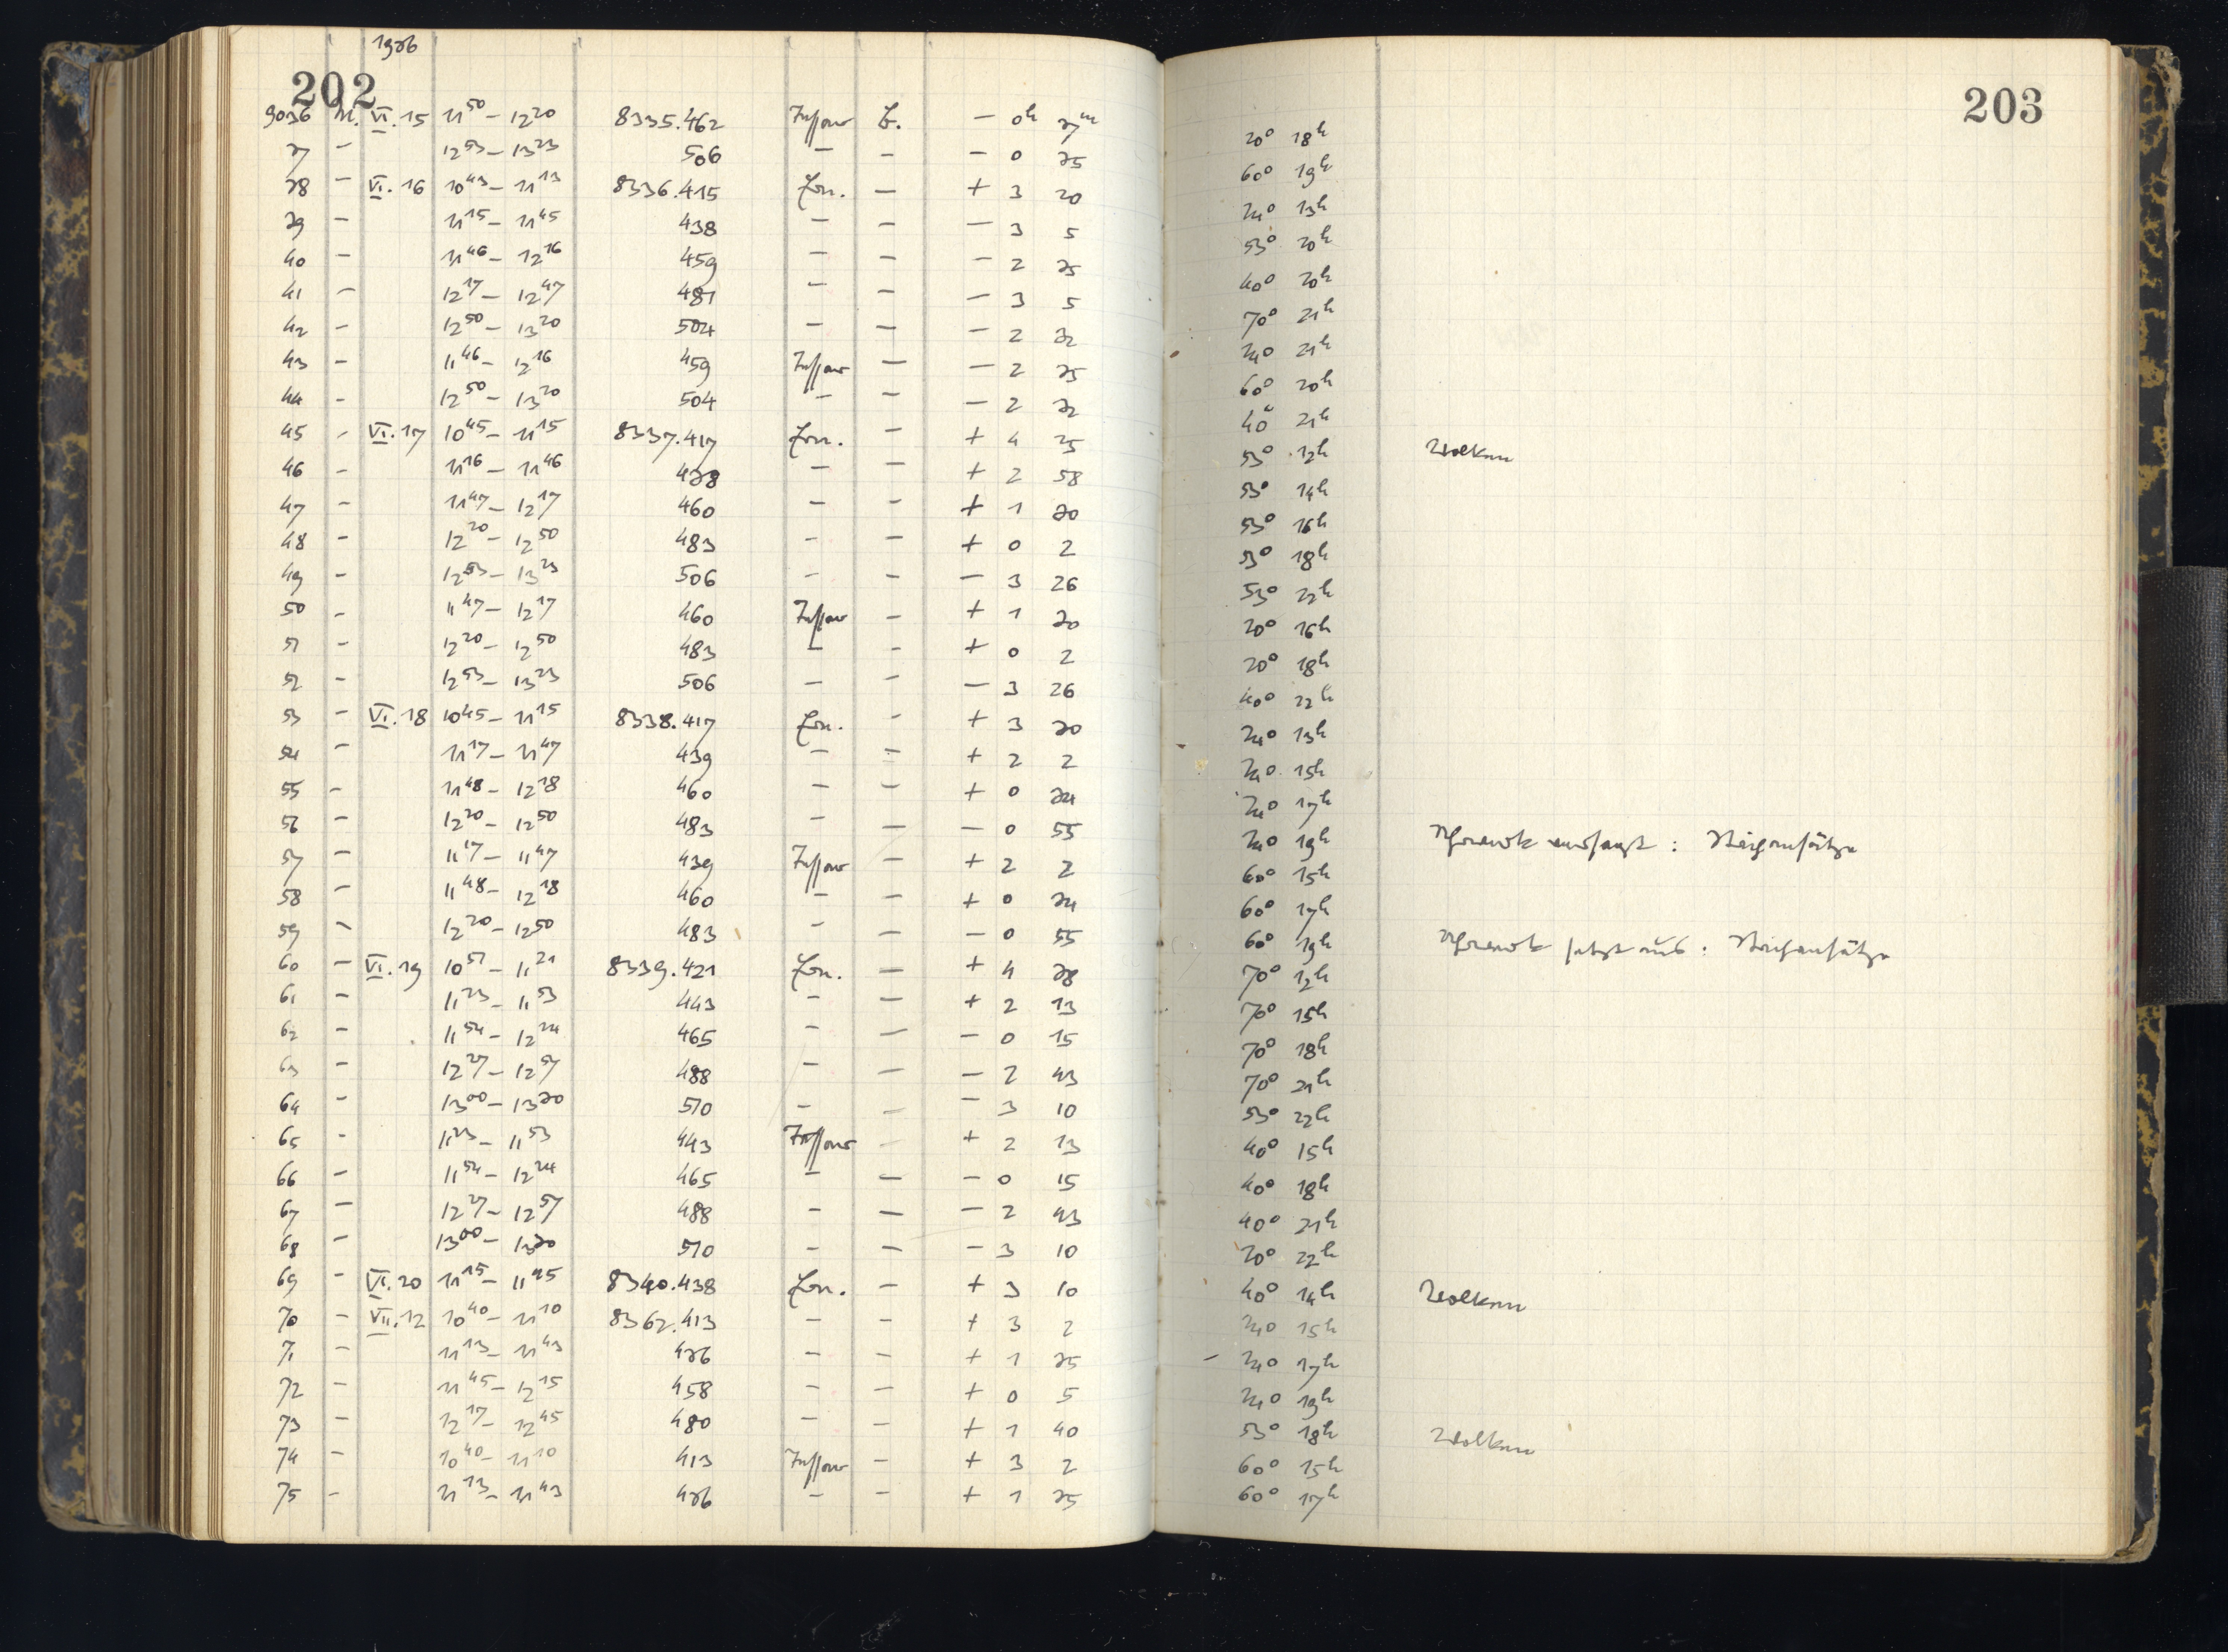 202
1936
9036 M. VI.15 11⁵⁰ – 12²⁰ 8335.462 Tessar b. – 0ʰ 37ᵐ
37 – 12⁵³ – 13²³ 506 – – – 0 35
38 – VI.16 10⁴³ – 11¹³ 8336.415 Ern. – + 3 20
39 – 11¹⁵ – 11⁴⁵ 438 – – – 3 5
40 – 11⁴⁶ – 12¹⁶ 459 – – – 2 35
41 – 12¹⁷ – 12⁴⁷ 481 – – – 3 5
42 – 12⁵⁰ – 13²⁰ 504 – – – 2 32
43 – 11⁴⁶ – 12¹⁶ 459 Tessar – – 2 35
44 – 12⁵⁰ – 13²⁰ 504 – – – 2 32
45 – VI.17 10⁴⁵ – 11¹⁵ 8337.417 Ern. – + 4 25
46 – 11¹⁶ – 11⁴⁶ 438 – – + 2 58
47 – 11⁴⁷ – 12¹⁷ 460 – – + 1 30
48 – 12²⁰ – 12⁵⁰ 483 – – + 0 2
49 – 12⁵³ – 13²³ 506 – – – 3 26
50 – 11⁴⁷ – 12¹⁷ 460 Tessar – + 1 30
51 – 12²⁰ – 12⁵⁰ 483 – – + 0 2
52 – 12⁵³ – 13²³ 506 – – – 3 26
53 – VI.18 10⁴⁵ – 11¹⁵ 8338.417 Ern. – + 3 30
54 – 11¹⁷ – 11⁴⁷ 439 – – + 2 2
55 – 11⁴⁸ – 12¹⁸ 460 – – + 0 34
56 – 12²⁰ – 12⁵⁰ 483 – – – 0 55
57 – 11¹⁷ – 11⁴⁷ 439 Tessar – + 2 2
58 – 11⁴⁸ – 12¹⁸ 460 – – + 0 34
59 – 12²⁰ – 12⁵⁰ 483 – – – 0 55
60 – VI.19 10⁵¹ – 11²¹ 8339.421 Ern. – + 4 38
61 – 11²³ – 11⁵³ 443 – – + 2 13
62 – 11⁵⁴ – 12²⁴ 465 – – – 0 15
63 – 12²⁷ – 12⁵⁷ 488 – – – 2 43
64 – 13⁰⁰ – 13³⁰ 510 – – – 3 10
65 – 11²³ – 11⁵³ 443 Tessar – + 2 13
66 – 11⁵⁴ – 12²⁴ 465 – – – 0 15
67 – 12²⁷ – 12⁵⁷ 488 – – – 2 43
68 – 13⁰⁰ – 13³⁰ 510 – – – 3 10
69 – VI.20 11¹⁵ – 11⁴⁵ 8340.438 Ern. – + 3 10
70 – VII.12 10⁴⁰ – 11¹⁰ 8362.413 – – + 3 2
71 – 11¹³ – 11⁴³ 436 – – + 1 35
72 – 11⁴⁵ – 12¹⁵ 458 – – + 0 5
73 – 12¹⁷ – 12⁴⁵ 480 – – + 1 40
74 – 10⁴⁰ – 11¹⁰ 413 Tessar – + 3 2
75 – 11¹³ – 11⁴³ 436 – – + 1 35
203
20° 18ʰ
60° 19ʰ
24° 13ʰ
53° 20ʰ
40° 20ʰ
70° 21ʰ
24° 21ʰ
60° 20ʰ
40° 21ʰ
53° 12ʰ Wolken
53° 14ʰ
53° 16ʰ
53° 18ʰ
53° 22ʰ
20° 16ʰ
20° 18ʰ
40° 22ʰ
24° 13ʰ
24° 15ʰ
24° 17ʰ
24° 19ʰ Uhrwerk versagt : Strichansätze
60° 15ʰ
60° 17ʰ
60° 19ʰ Uhrwerk setzt aus : Strichansätze
70° 12ʰ
70° 15ʰ
70° 18ʰ
70° 21ʰ
53° 22ʰ
40° 15ʰ
40° 18ʰ
40° 21ʰ
20° 22ʰ
40° 14ʰ Wolken
24° 15ʰ
– 24° 17ʰ
24° 19ʰ
53° 18ʰ Wolken
60° 15ʰ
60° 17ʰ